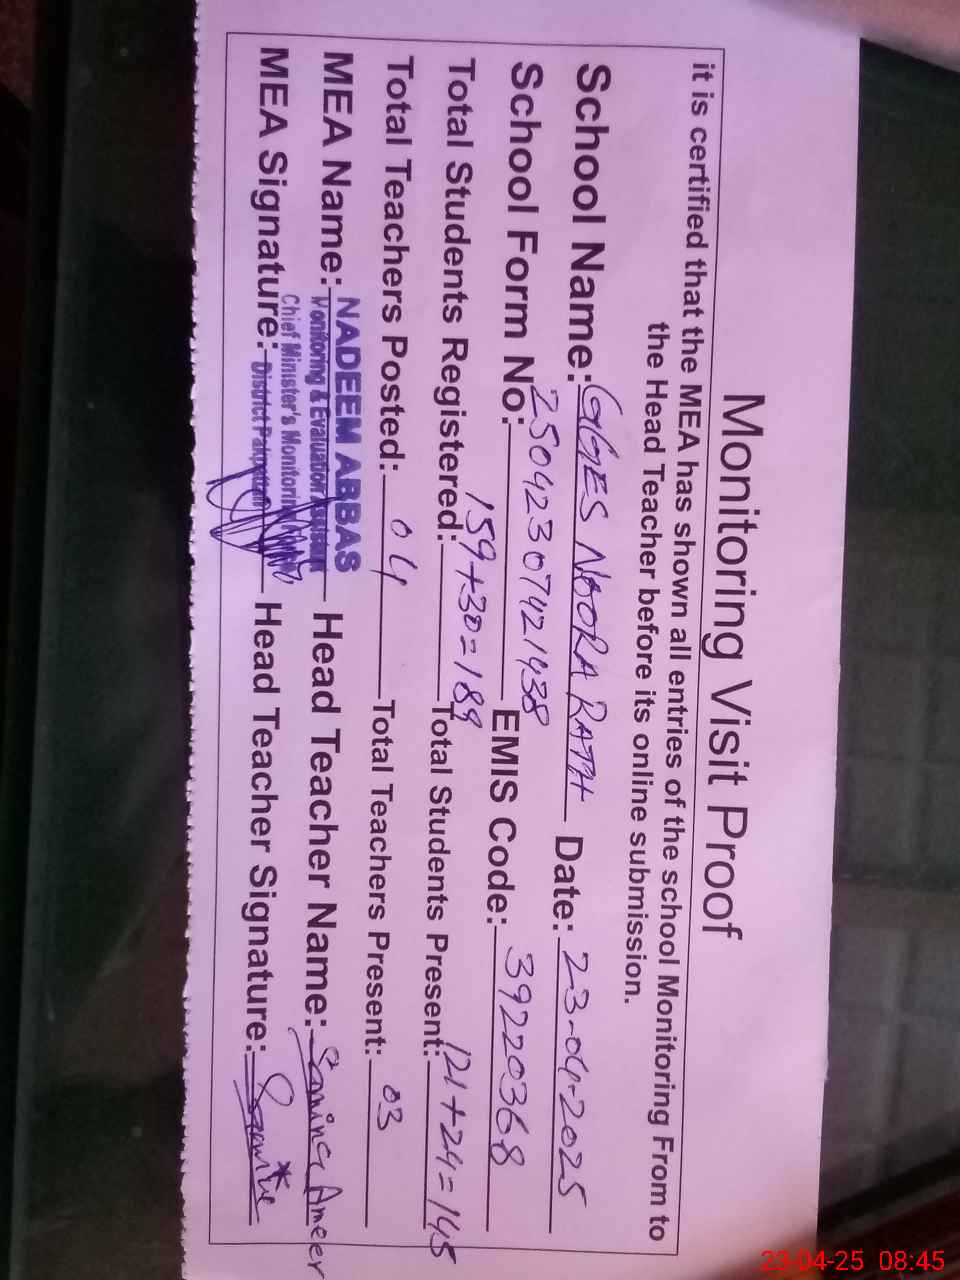 Monitoring Visit Proof
it is certified that the MEA has shown all entries of the school Monitoring From to
the Head Teacher before its online submission.
School Name: GGES NOORA RATH Date: 23-04-2025
School Form No: 25042307421438 EMIS Code: 39220368
Total Students Registered: 159+30=189 Total Students Present: 121+24=145
Total Teachers Posted: 04 Total Teachers Present: 03
MEA Name: NADEEM ABBAS Head Teacher Name: Samina Ameer
Monitoring & Evaluation Assistant
Chief Minister's Monitoring
MEA Signature: District Pakpattan Head Teacher Signature:
23-04-25 08:45